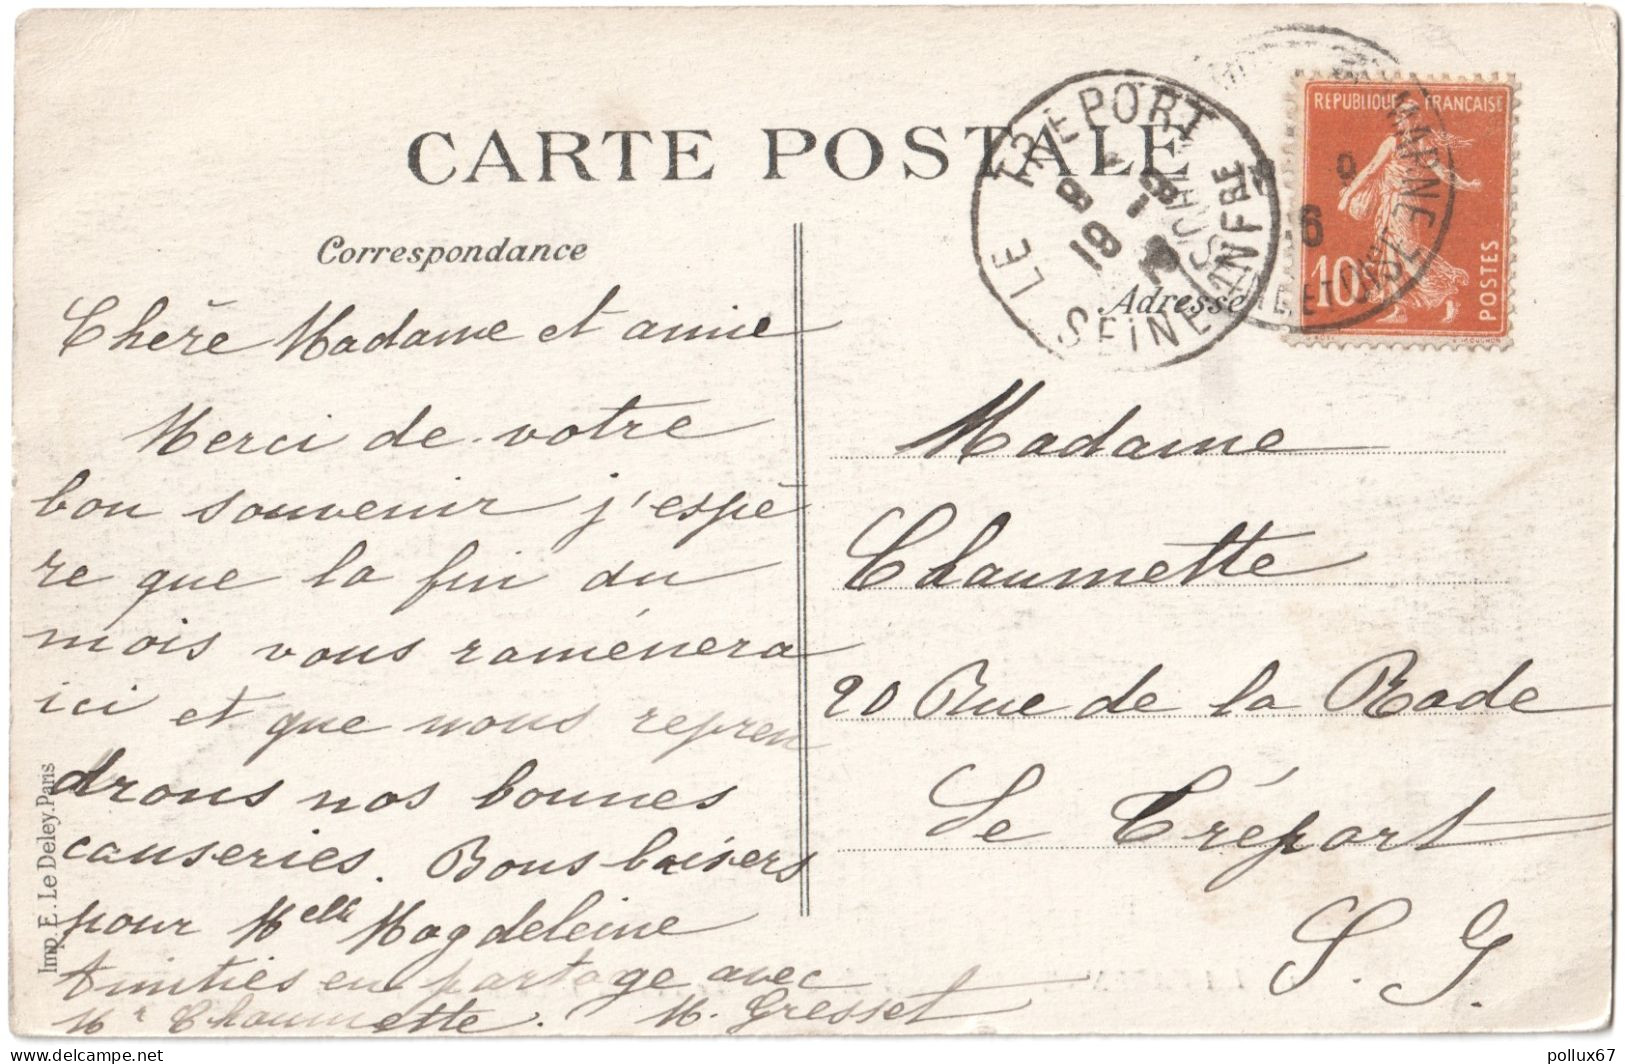 CARTE POSTALE
Correspondance
Chère Madame et amie
Merci de votre
bon souvenir j'espè
re que la fin du
mois vous ramènera
ici et que nous repren
drons nos bonnes
causeries. Bons baisers
pour Melle Magdeleine
Amitiés en partage avec
Mr Chaumette. M. Gresset
Imp. E. Le Deley. Paris
LE TREPORT
SEINE INFRE
8 -9
19
MARNE
SEINE ET OISE
REPUBLIQUE FRANÇAISE
10c
POSTES
Adresse
Madame
Chaumette
20 Rue de la Rade
Le Tréport
S. I.
delcampe.net
pollux67